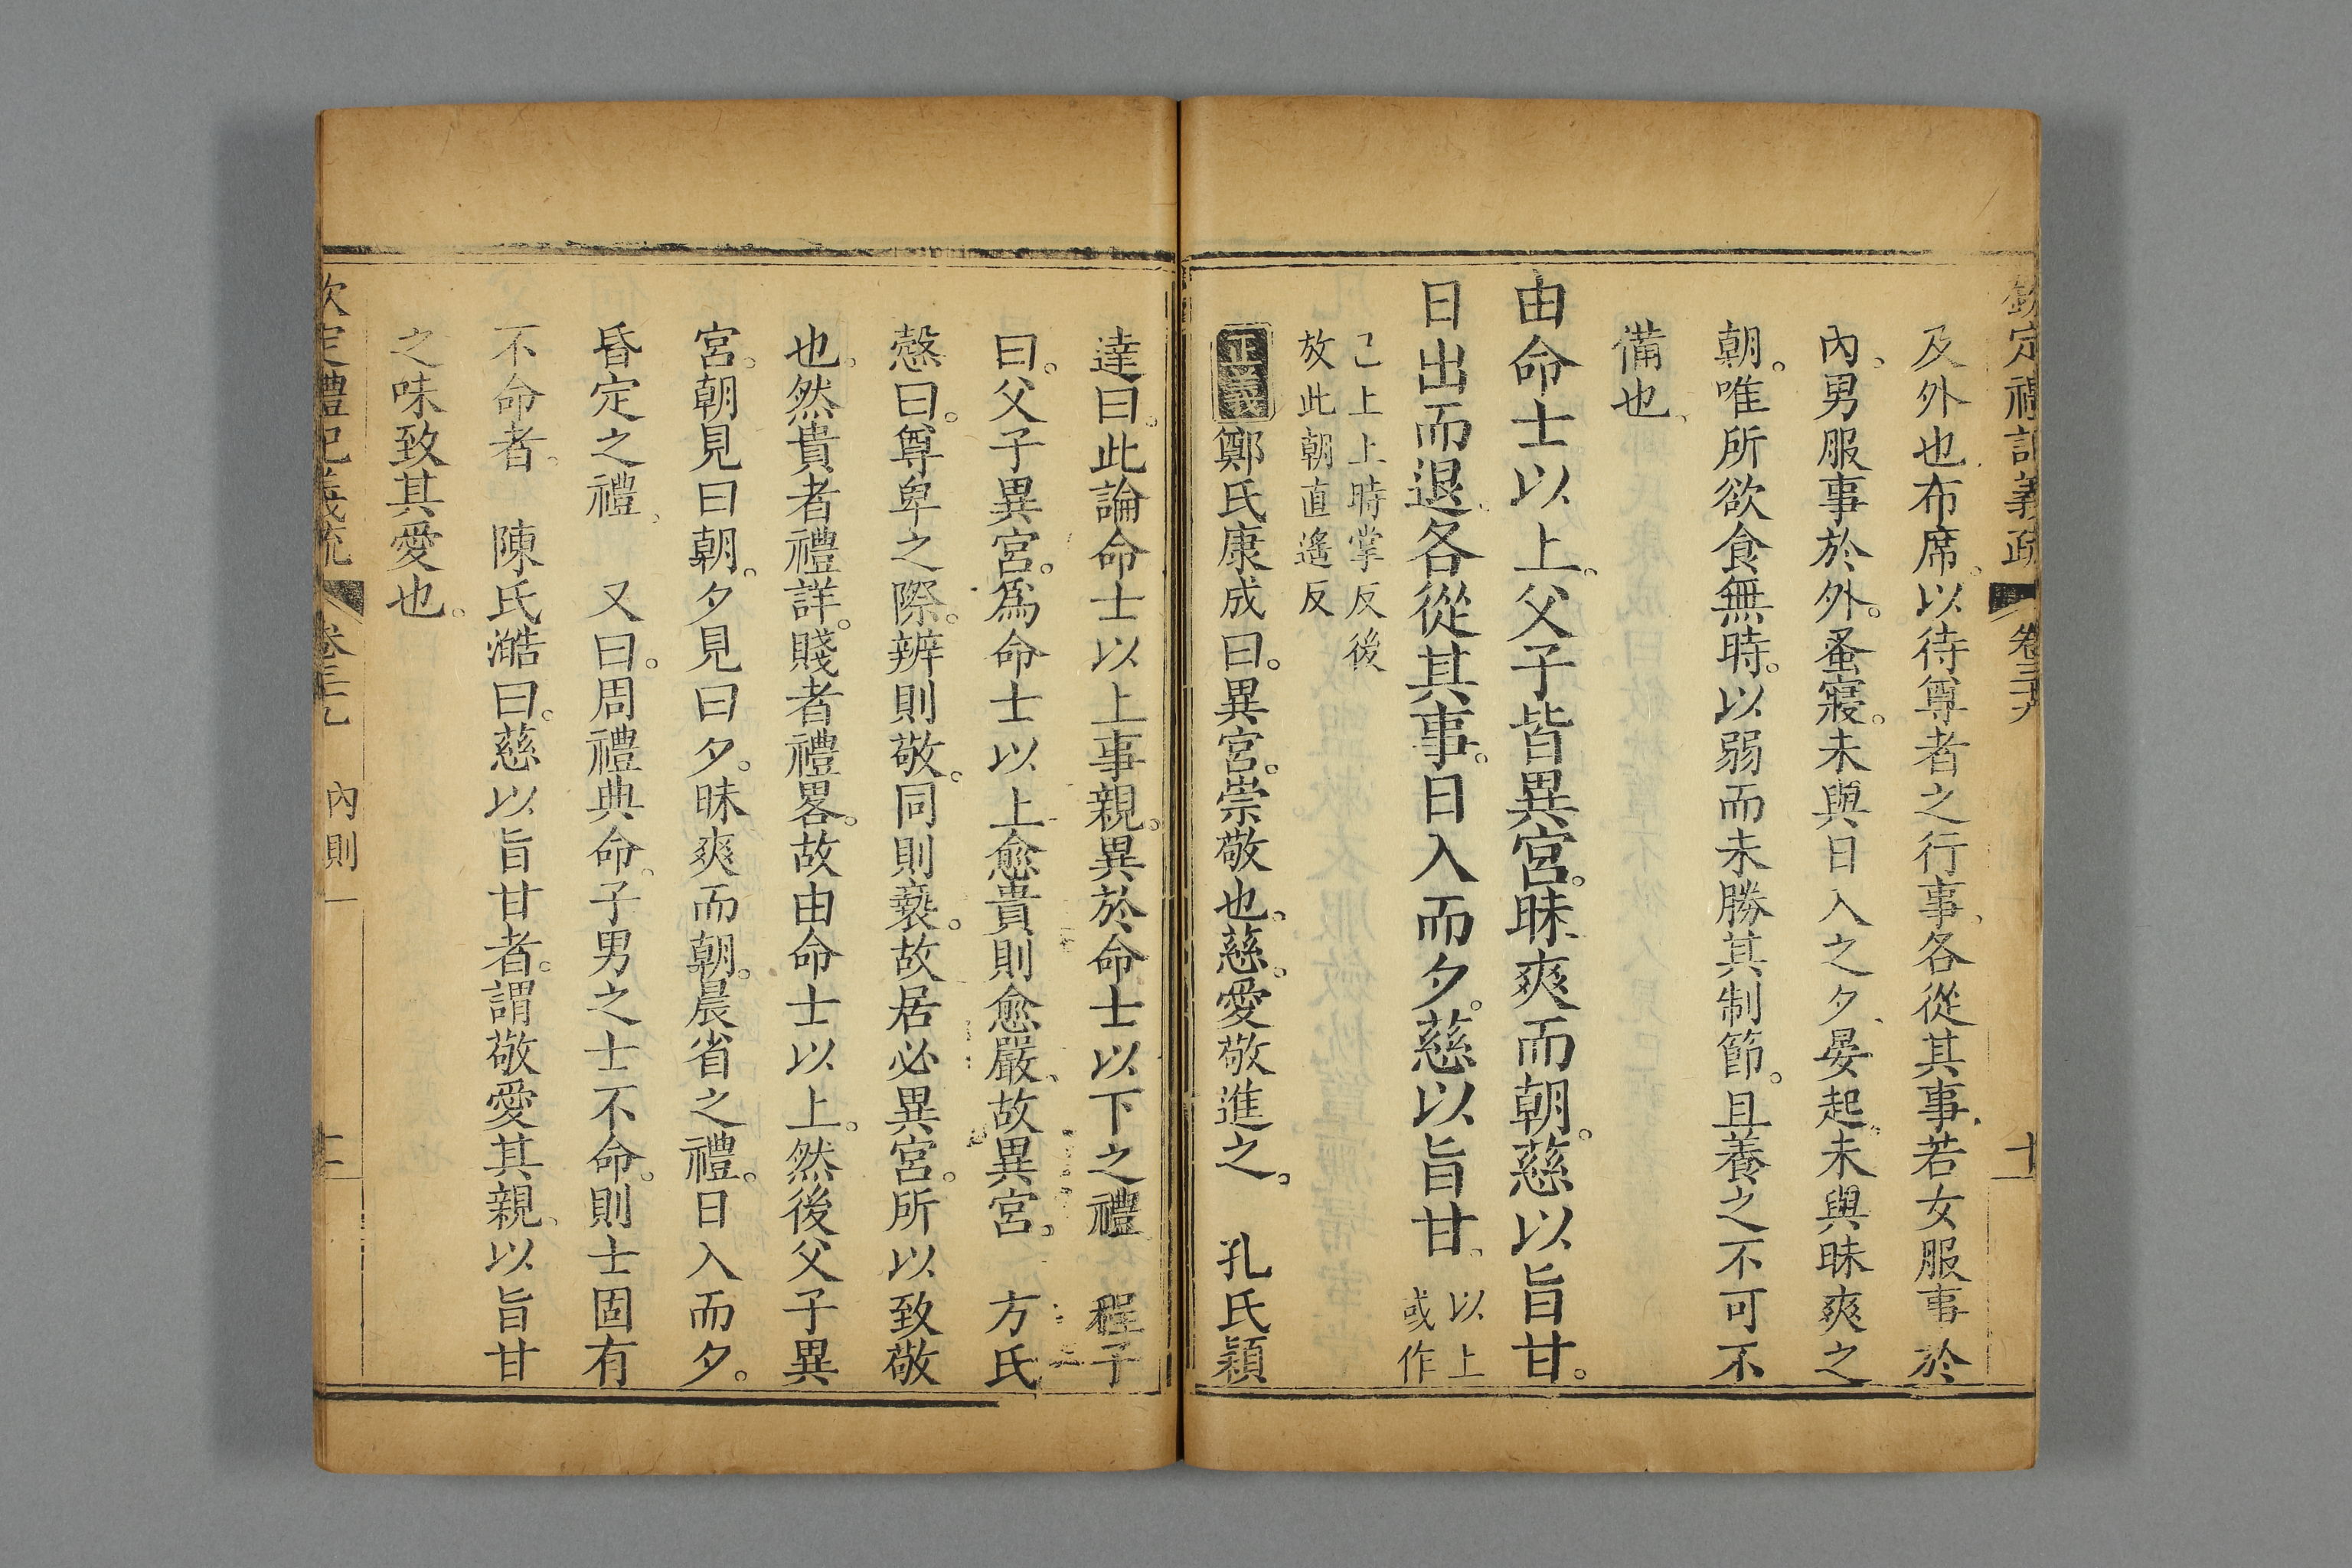 欽定禮記義疏 卷三十九 十一
及外也布席。以待尊者之行事、各從其事、若女服事於
內、男服事於外。蚤寢。未與日入之夕、晏起。未與昧爽之
朝。唯所欲食無時。以弱而未勝其制節。且養之不可不
備也、
由命士以上。父子皆異宮。昧爽而朝。慈以旨甘。
日出而退。各從其事。日入而夕。慈以旨甘。以上
或作
已上上時掌反後
放此朝直遙反
正義鄭氏康成曰。異宮。崇敬也。慈。愛敬進之。 孔氏穎
達曰。此論命士以上事親。異於命士以下之禮 程子
曰。父子異宮。爲命士以上愈貴則愈嚴。故異宮。 方氏
慤曰。尊卑之際。辨則敬。同則褻。故居必異宮。所以致敬
也。然貴者禮詳。賤者禮畧。故由命士以上。然後父子異
宮。朝見曰朝。夕見曰夕。昧爽而朝。晨省之禮。日入而夕。
昏定之禮。 又曰。周禮典命。子男之士不命。則士固有
不命者。 陳氏澔曰。慈以旨甘者。謂敬愛其親、以旨甘
之味致其愛也。
欽定禮記義疏 卷三十九 內則 十二